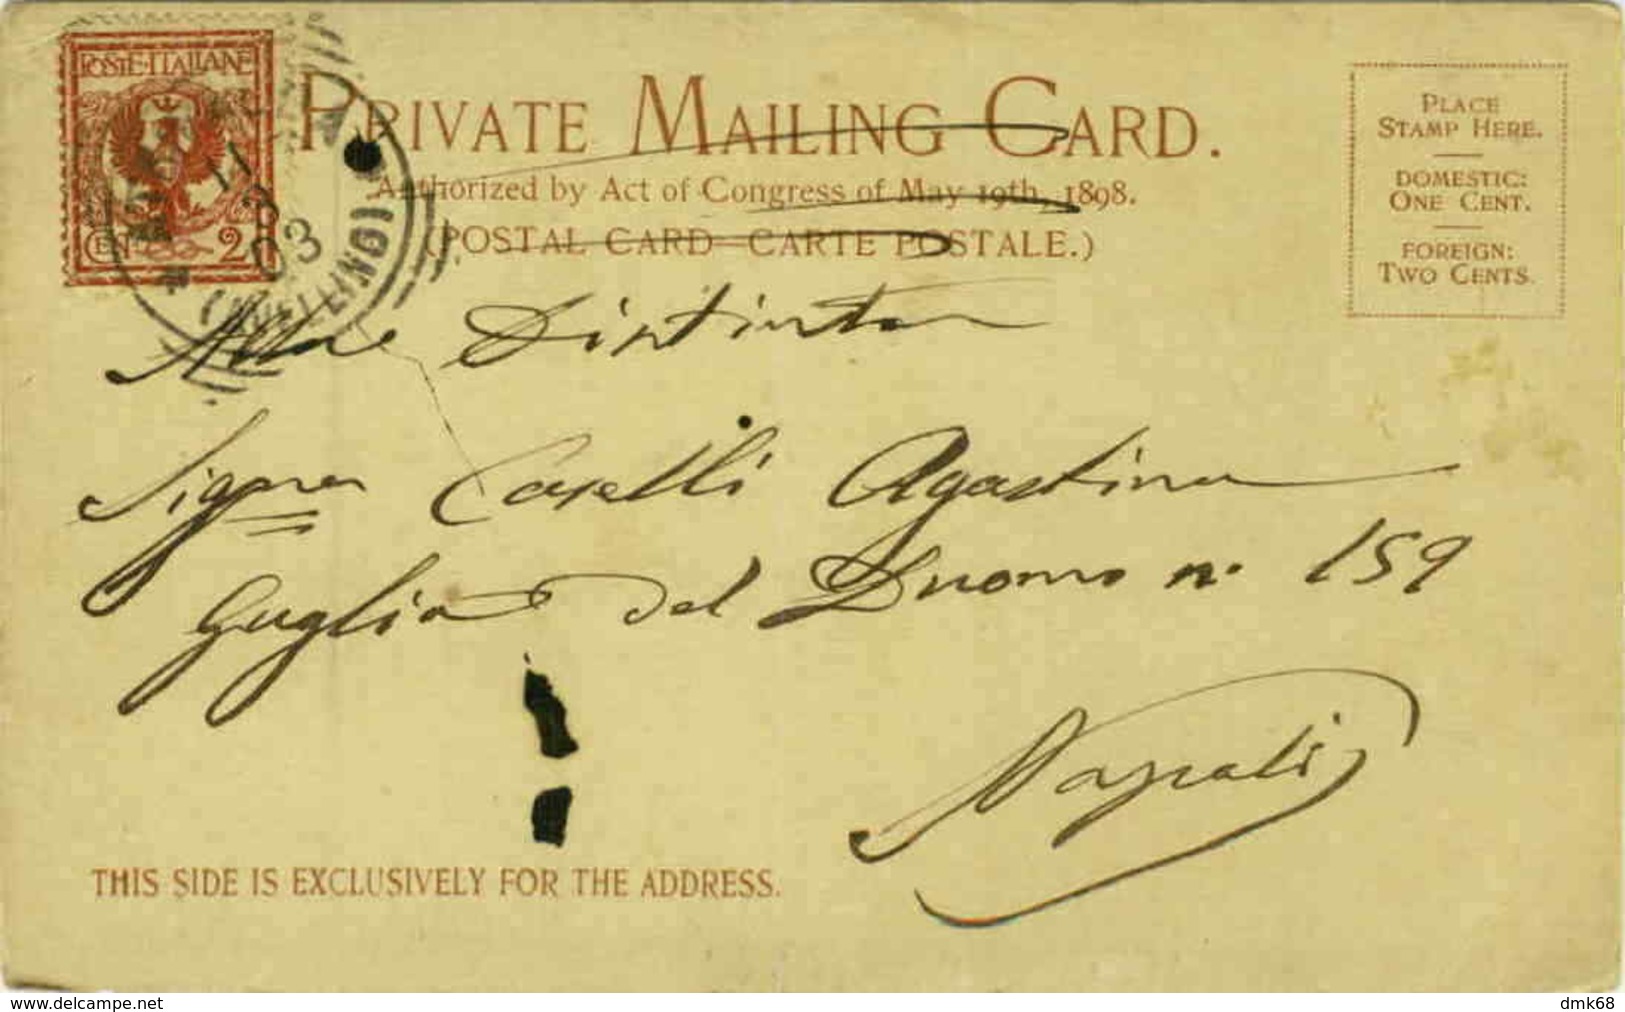 POSTE·ITALIANE
CEN 2
11
03
(AVELLINO)
PRIVATE MAILING CARD.
Authorized by Act of Congress of May 19th, 1898.
(POSTAL CARD—CARTE POSTALE.)
PLACE
STAMP HERE.
DOMESTIC:
ONE CENT.
FOREIGN:
TWO CENTS.
Alla Distinta
Signra Caselli Agostina
Guglia del Duomo n. 159
Napoli
THIS SIDE IS EXCLUSIVELY FOR THE ADDRESS.
www.delcampe.net
dmk68